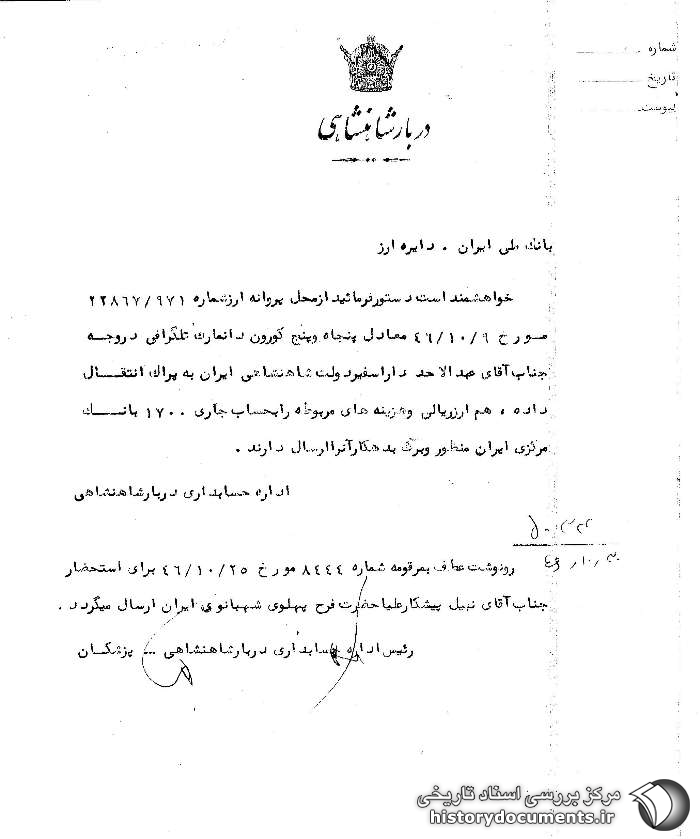 شماره
تاریخ
پیوست
دربار شاهنشاهی
بانک ملی ایران . دایره ارز
خواهشمند است دستور فرمائید از محل پروانه ارز شماره ۲۲۸۶۷/۹۷۱
مورخ ۴۶/۱۰/۹ معادل پنجاه وپنج کورون دانمارک تلگرافی دروجه
جناب آقای عبدالاحد دارا سفیر دولت شاهنشاهی ایران به پراگ انتقال
داده ، هم ارز ریالی وهزینه های مربوطه را بحساب جاری ۱۷۰۰ بانک
مرکزی ایران منظور وبرگ بدهکار آنرا ارسال دارند .
اداره حسابداری دربار شاهنشاهی
۴۶/۱۰/۳۰
رونوشت عطف بمرقومه شماره ۸۴۴۴ مورخ ۴۶/۱۰/۲۵ برای استحضار
جناب آقای نبیل پیشکار علیاحضرت فرح پهلوی شهبانوی ایران ارسال میگردد .
رئیس اداره حسابداری دربار شاهنشاهی - پزشکان
مرکز بررسی اسناد تاریخی
historydocuments.ir